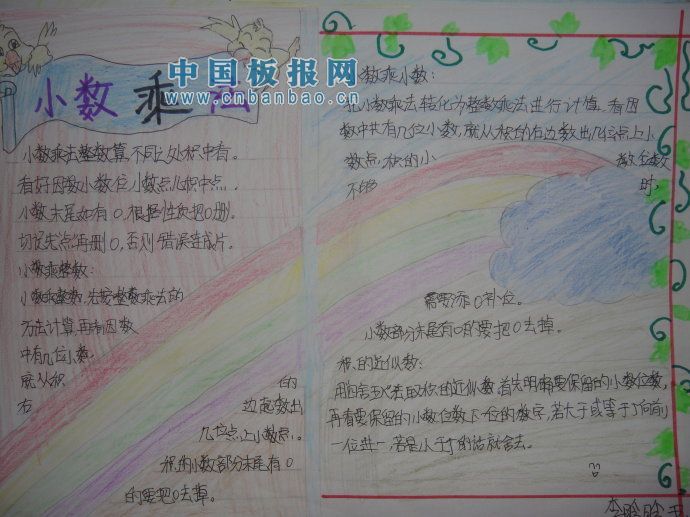 中国板报网
www.cnbanbao.cn
小数乘法
小数乘法整数算,不同之处积中看。
看好因数小数位,小数点儿积中点,
小数末尾如有0,根据性质把0删。
切记先点再删0,否则错误连成片。
小数乘整数:
小数乘整数,先按整数乘法的
方法计算,再看因数
中有几位小数,
就从积的
右边起数出
几位点上小数点。
积的小数部分末尾有0
的要把0去掉。
数乘小数:
把小数乘法转化为整数乘法进行计值。看因
数中共有几位小数,就从积的右边数出几位点上小
数点,积的小数位数
不够时,
需要添0补位。
小数部分末尾有0的要把0去掉。
积的近似数:
用四舍五入法取积的近似数,首先明确需要保留的小数位数,
再看需要保留的小数位数下一位的数字,若大于或等于5向前
一位进一,若是小于5的话就舍去。